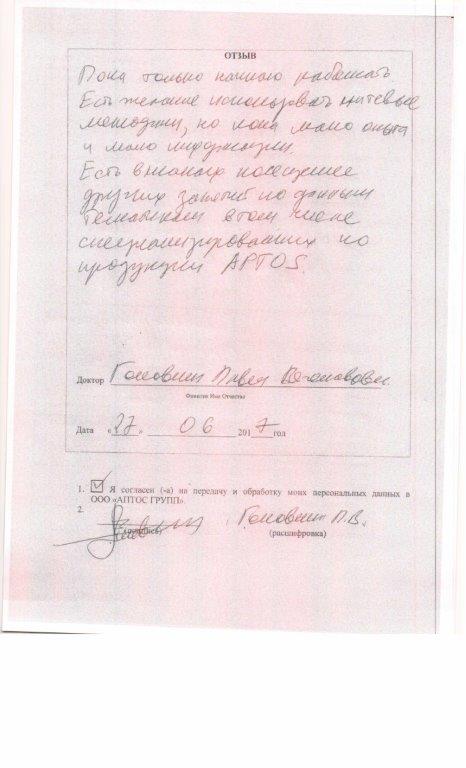 ОТЗЫВ
Пока только начинаю работать.
Есть желание использовать нитевые
методики, но пока мало опыта
и мало информации.
Есть в планах посещение
других занятий по данным
тематикам в том числе
специализированных по
продукции APTOS.
Доктор Головин Павел
Фамилия Имя Отчество
Дата «27» 06 2017 год
1. Я согласен (-а) на передачу и обработку моих персональных данных в
ООО «АПТОС ГРУПП».
2.
(подпись) Головин П.В.
(расшифровка)